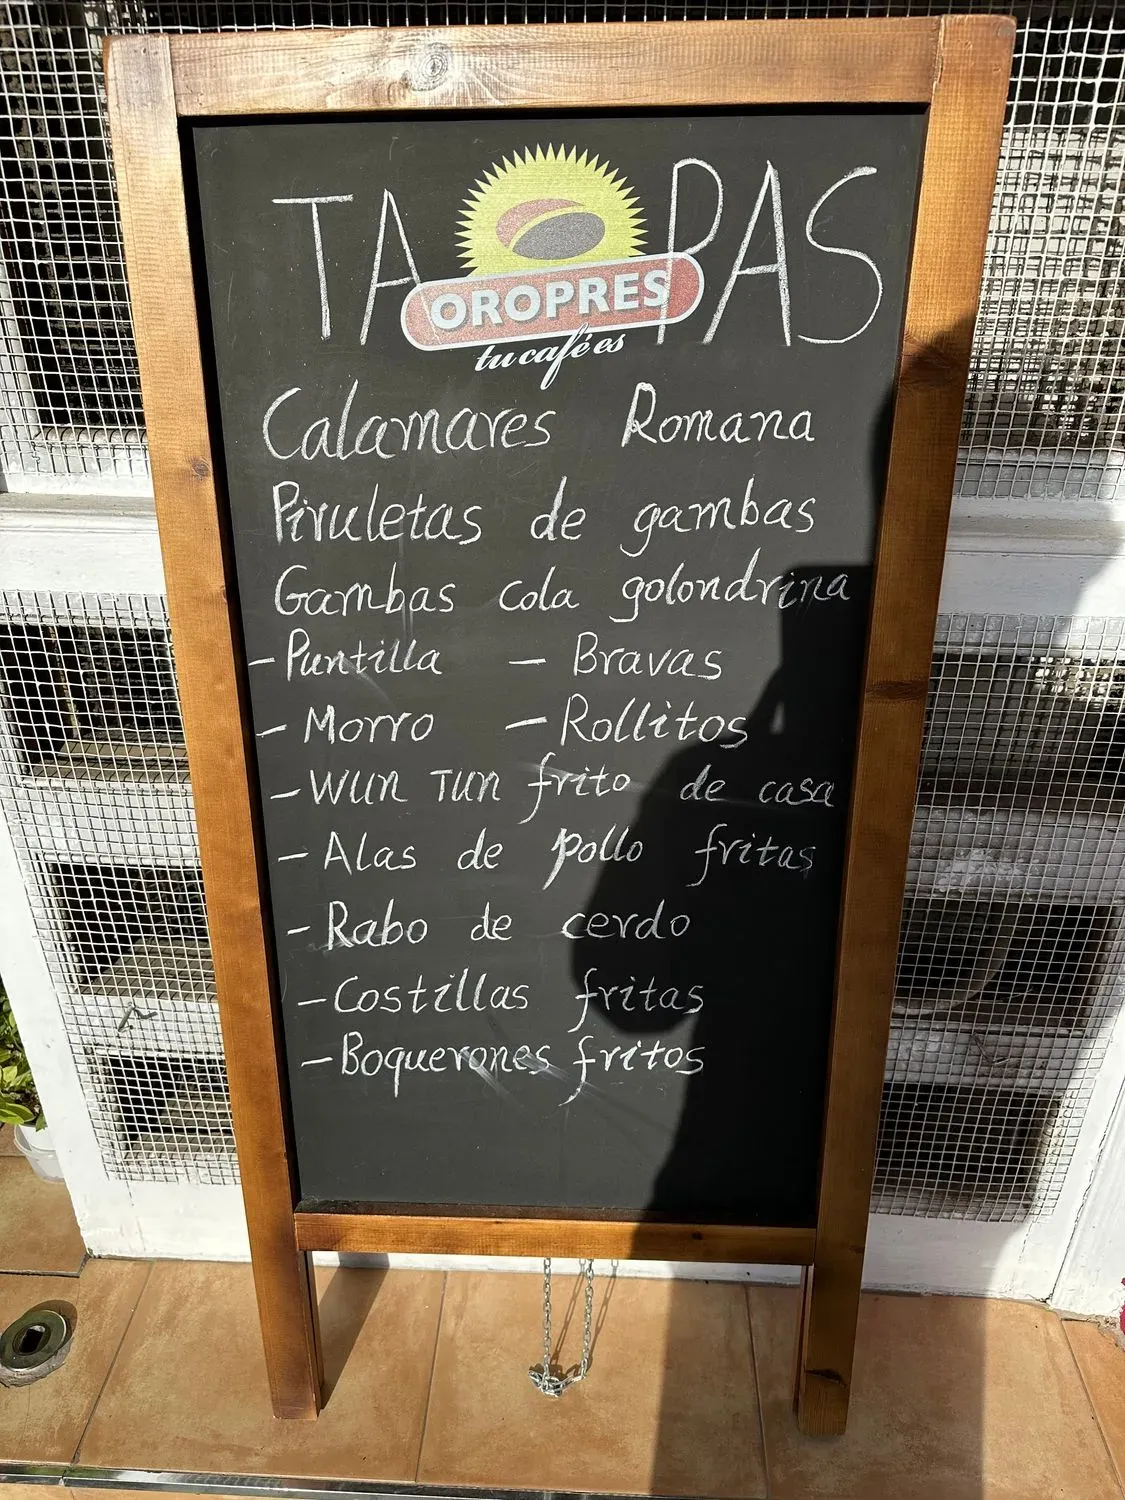 TAPAS
OROPRES
tu café es
Calamares Romana
Piruletas de gambas
Gambas cola golondrina
- Puntilla - Bravas
- Morro - Rollitos
- WUN TUN frito de casa
- Alas de pollo fritas
- Rabo de cerdo
- Costillas fritas
- Boquerones fritos